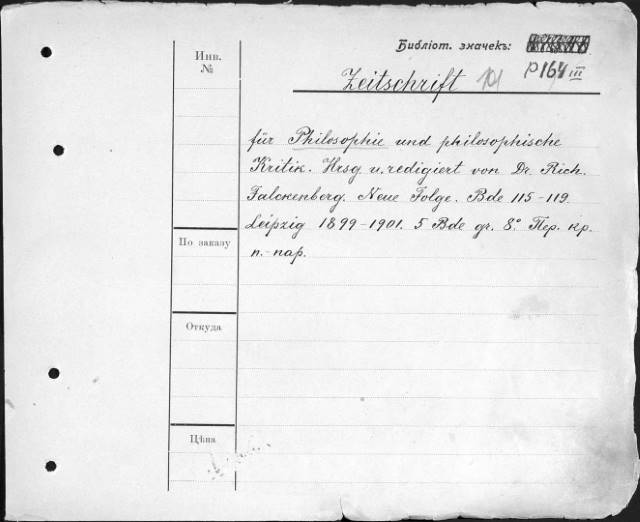 Библіот. значекъ:
Инв.
№
Zeitschrift
P 164 III
für Philosophie und philosophische
Kritik. Hrsg u. redigiert von Dr. Rich.
Falckenberg. Neue Folge. Bde 115-119.
Leipzig 1899-1901. 5 Bde gr. 8° Пер. кр.
п.-пар.
По заказу
Откуда
Цѣна